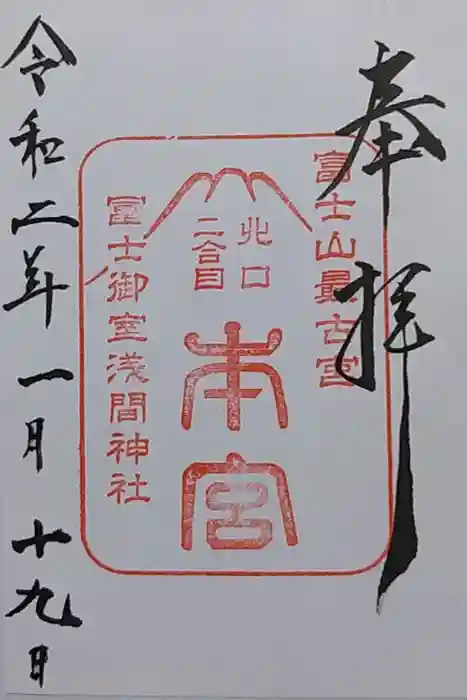 奉拝
富士山最古宮
北口
二合目
本宮
冨士御室浅間神社
令和二年一月十九日